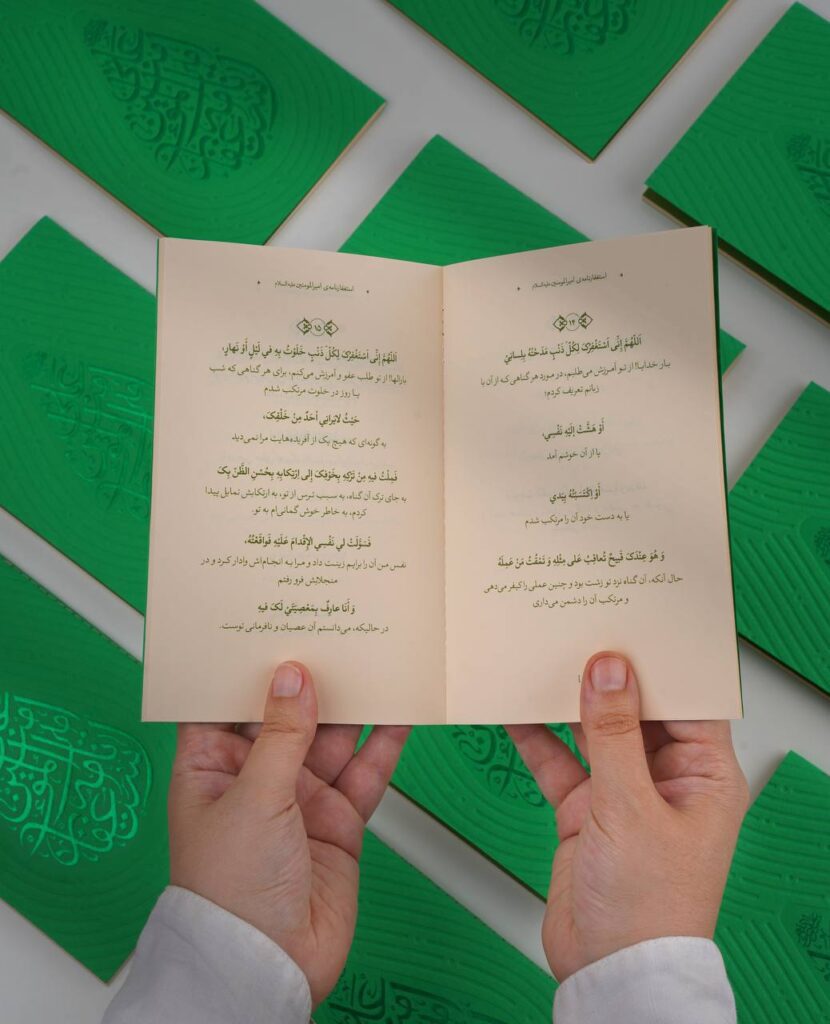 استغفارنامه‌ی امیرالمومنین علیه السلام
۱۴
اَللّهُمَّ إِنّی اَسْتَغْفِرُکَ لِکُلِّ ذَنْبٍ مَدَحْتُهُ بِلِسانِیْ
بار خدایا! از تو آمرزش می‌طلبم، در مورد هر گناهی که از آن با
زبانم تعریف کردم؛
أَوْ هَشَّتْ إِلَیْهِ نَفْسِی،
یا از آن خوشم آمد
أَوْ اِکْتَسَبْتُهُ بِیَدِي
یا به دست خود آن را مرتکب شدم
وَ هُوَ عِنْدَکَ قَبیحٌ تُعاقِبُ عَلی مِثْلِهِ وَ تَمْقُتُ مَنْ عَمِلَهُ
حال آنکه، آن گناه نزد تو زشت بود و چنین عملی را کیفر می‌دهی
و مرتکب آن را دشمن می‌داری
استغفارنامه‌ی امیرالمومنین علیه السلام
۱۵
اَللّهُمَّ إِنّی اَسْتَغْفِرُکَ لِکُلِّ ذَنْبٍ خَلَوْتُ بِهِ في لَیْلٍ أَوْ نَهارٍ،
بارالها! از تو طلب عفو و آمرزش می‌کنم، برای هر گناهی که شب
یا روز در خلوت مرتکب شدم
حَیْثُ لایَراني أَحَدٌ مِنْ خَلْقِکَ،
به گونه‌ای که هیچ یک از آفریده‌هایت مرا نمی‌دید
فَمِلْتُ فیهِ مِنْ تَرْکِهِ بِخَوْفِکَ إِلی اِرْتِکابِهِ بِحُسْنِ الظَّنِّ بِکَ
به جای ترک آن گناه، به سبب ترس از تو، به ارتکابش تمایل پیدا
کردم، به خاطر خوش گمانی‌ام به تو.
فَسَوَّلَتْ لي نَفْسِي الإِقْدامَ عَلَیْهِ فَواقَعْتُهُ،
نفس من آن را برایم زینت داد و مرا به انجام‌اش وادار کرد و در
منجلابش فرو رفتم
وَ أَنَا عارِفٌ بِمَعْصِیَتِيْ لَکَ فیهِ
در حالیکه، می‌دانستم آن عصیان و نافرمانی توست.